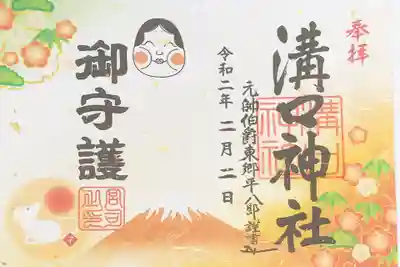 奉拝
溝口神社
元帥伯爵東郷平八郎謹書
令和二年 二月 二日
御守護